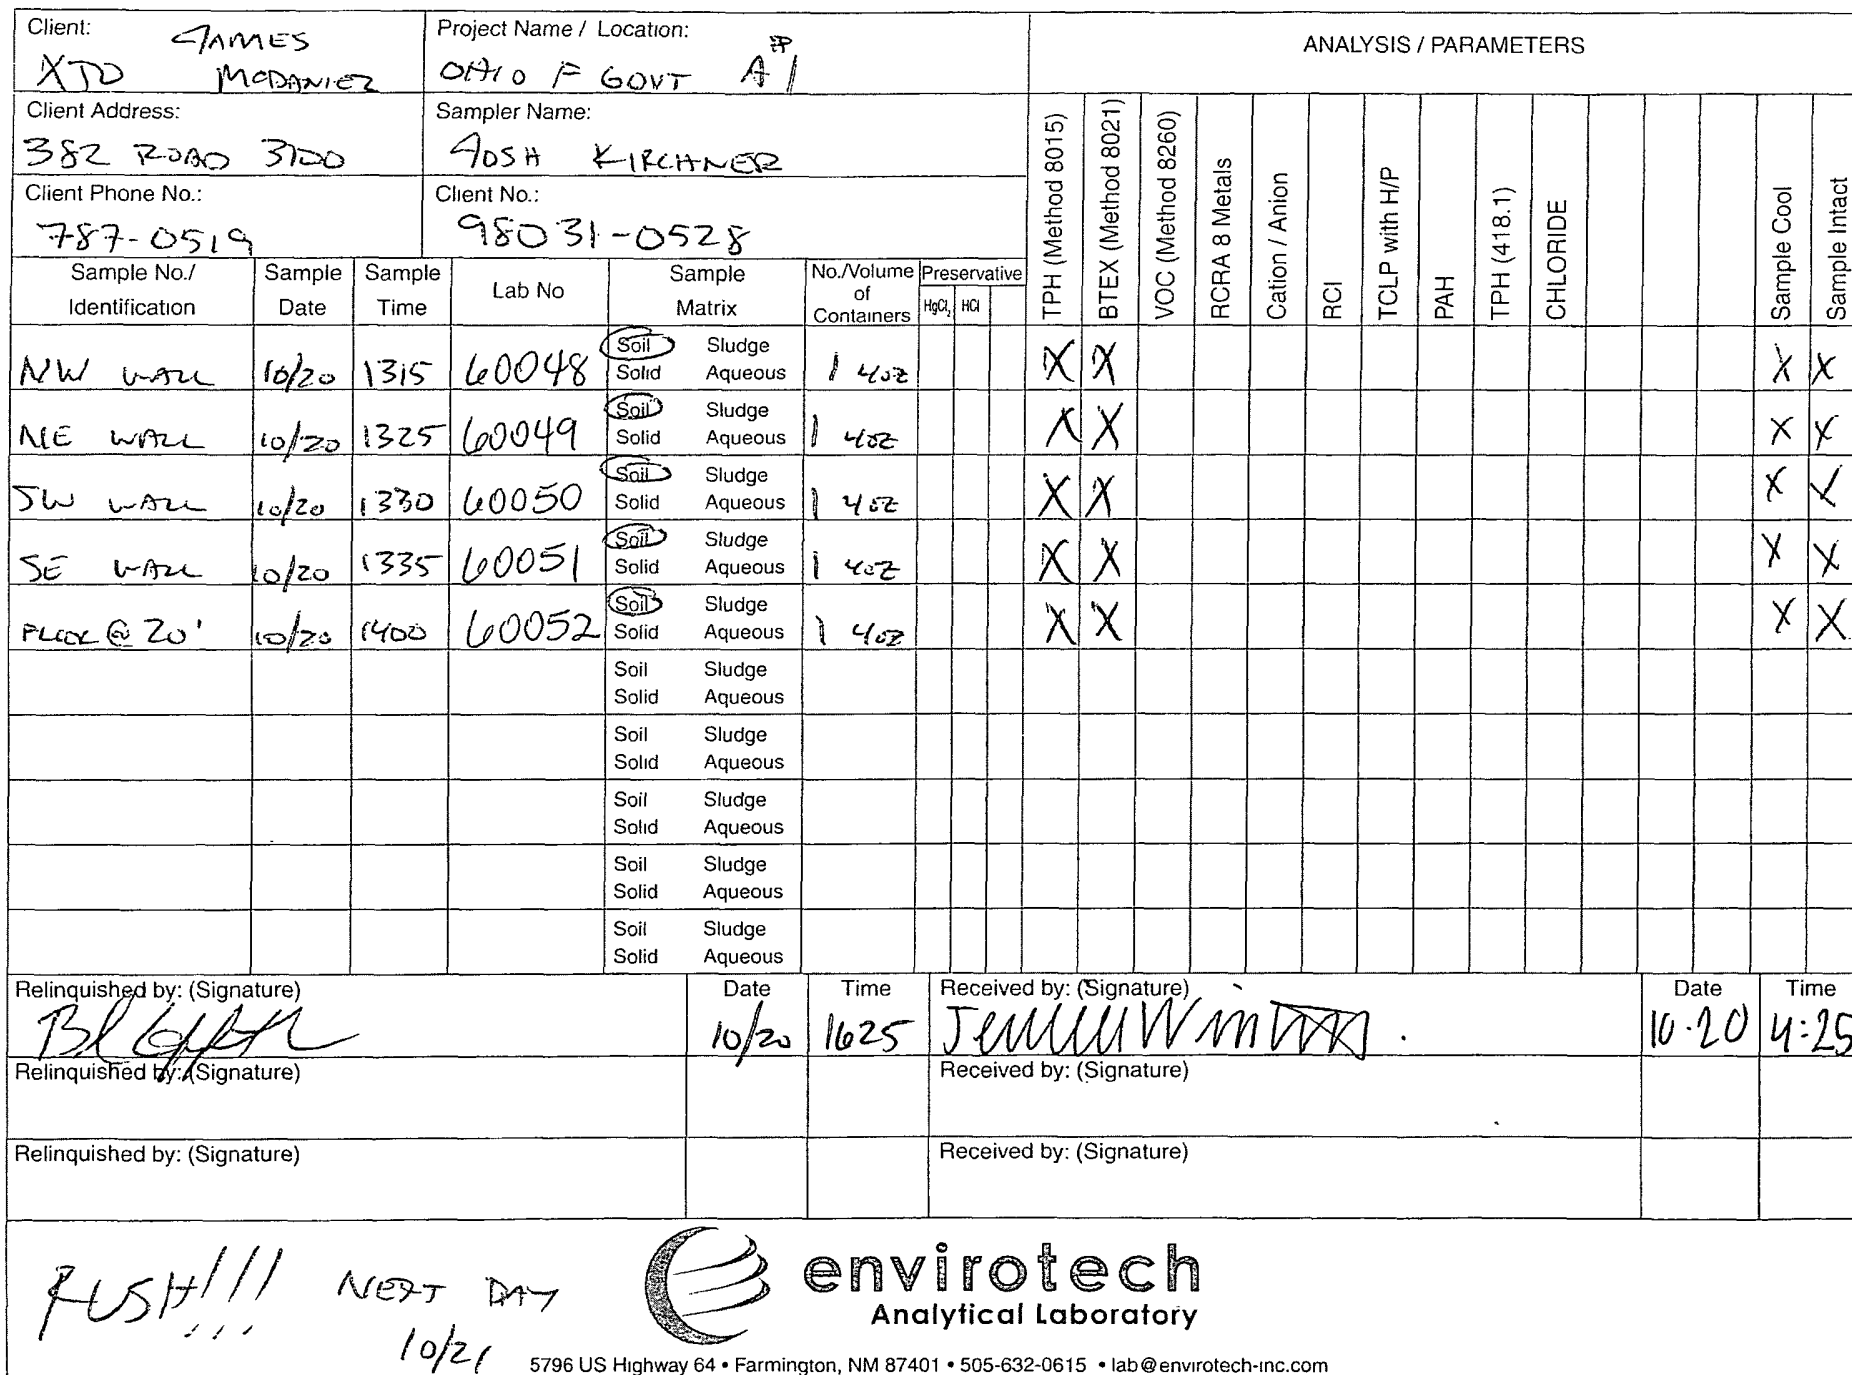 Client: JAMES
XTO MCDANIEL
Project Name / Location:
OHIO F GOVT A #1
ANALYSIS / PARAMETERS
Client Address:
382 ROAD 3100
Sampler Name:
JOSH KIRCHNER
Client Phone No.:
787-0519
Client No.:
98031-0528
Sample No./ Identification
Sample Date
Sample Time
Lab No
Sample Matrix
No./Volume of Containers
Preservative
HgCl₂ HCl
TPH (Method 8015)
BTEX (Method 8021)
VOC (Method 8260)
RCRA 8 Metals
Cation / Anion
RCI
TCLP with H/P
PAH
TPH (418.1)
CHLORIDE
Sample Cool
Sample Intact
NW WALL 10/20 1315 60048 Soil Sludge Solid Aqueous 1 4oz X X X X
NE WALL 10/20 1325 60049 Soil Sludge Solid Aqueous 1 4oz X X X X
SW WALL 10/20 1330 60050 Soil Sludge Solid Aqueous 1 4oz X X X X
SE WALL 10/20 1335 60051 Soil Sludge Solid Aqueous 1 4oz X X X X
FLOOR @ 20' 10/20 1400 60052 Soil Sludge Solid Aqueous 1 4oz X X X X
Soil Sludge
Solid Aqueous
Soil Sludge
Solid Aqueous
Soil Sludge
Solid Aqueous
Soil Sludge
Solid Aqueous
Soil Sludge
Solid Aqueous
Relinquished by: (Signature)
Date
10/20
Time
1625
Received by: (Signature)
Date
10-20
Time
4:25
Relinquished by: (Signature)
Received by: (Signature)
Relinquished by: (Signature)
Received by: (Signature)
RUSH!!! NEXT DAY
10/21
envirotech
Analytical Laboratory
5796 US Highway 64 • Farmington, NM 87401 • 505-632-0615 • lab@envirotech-inc.com